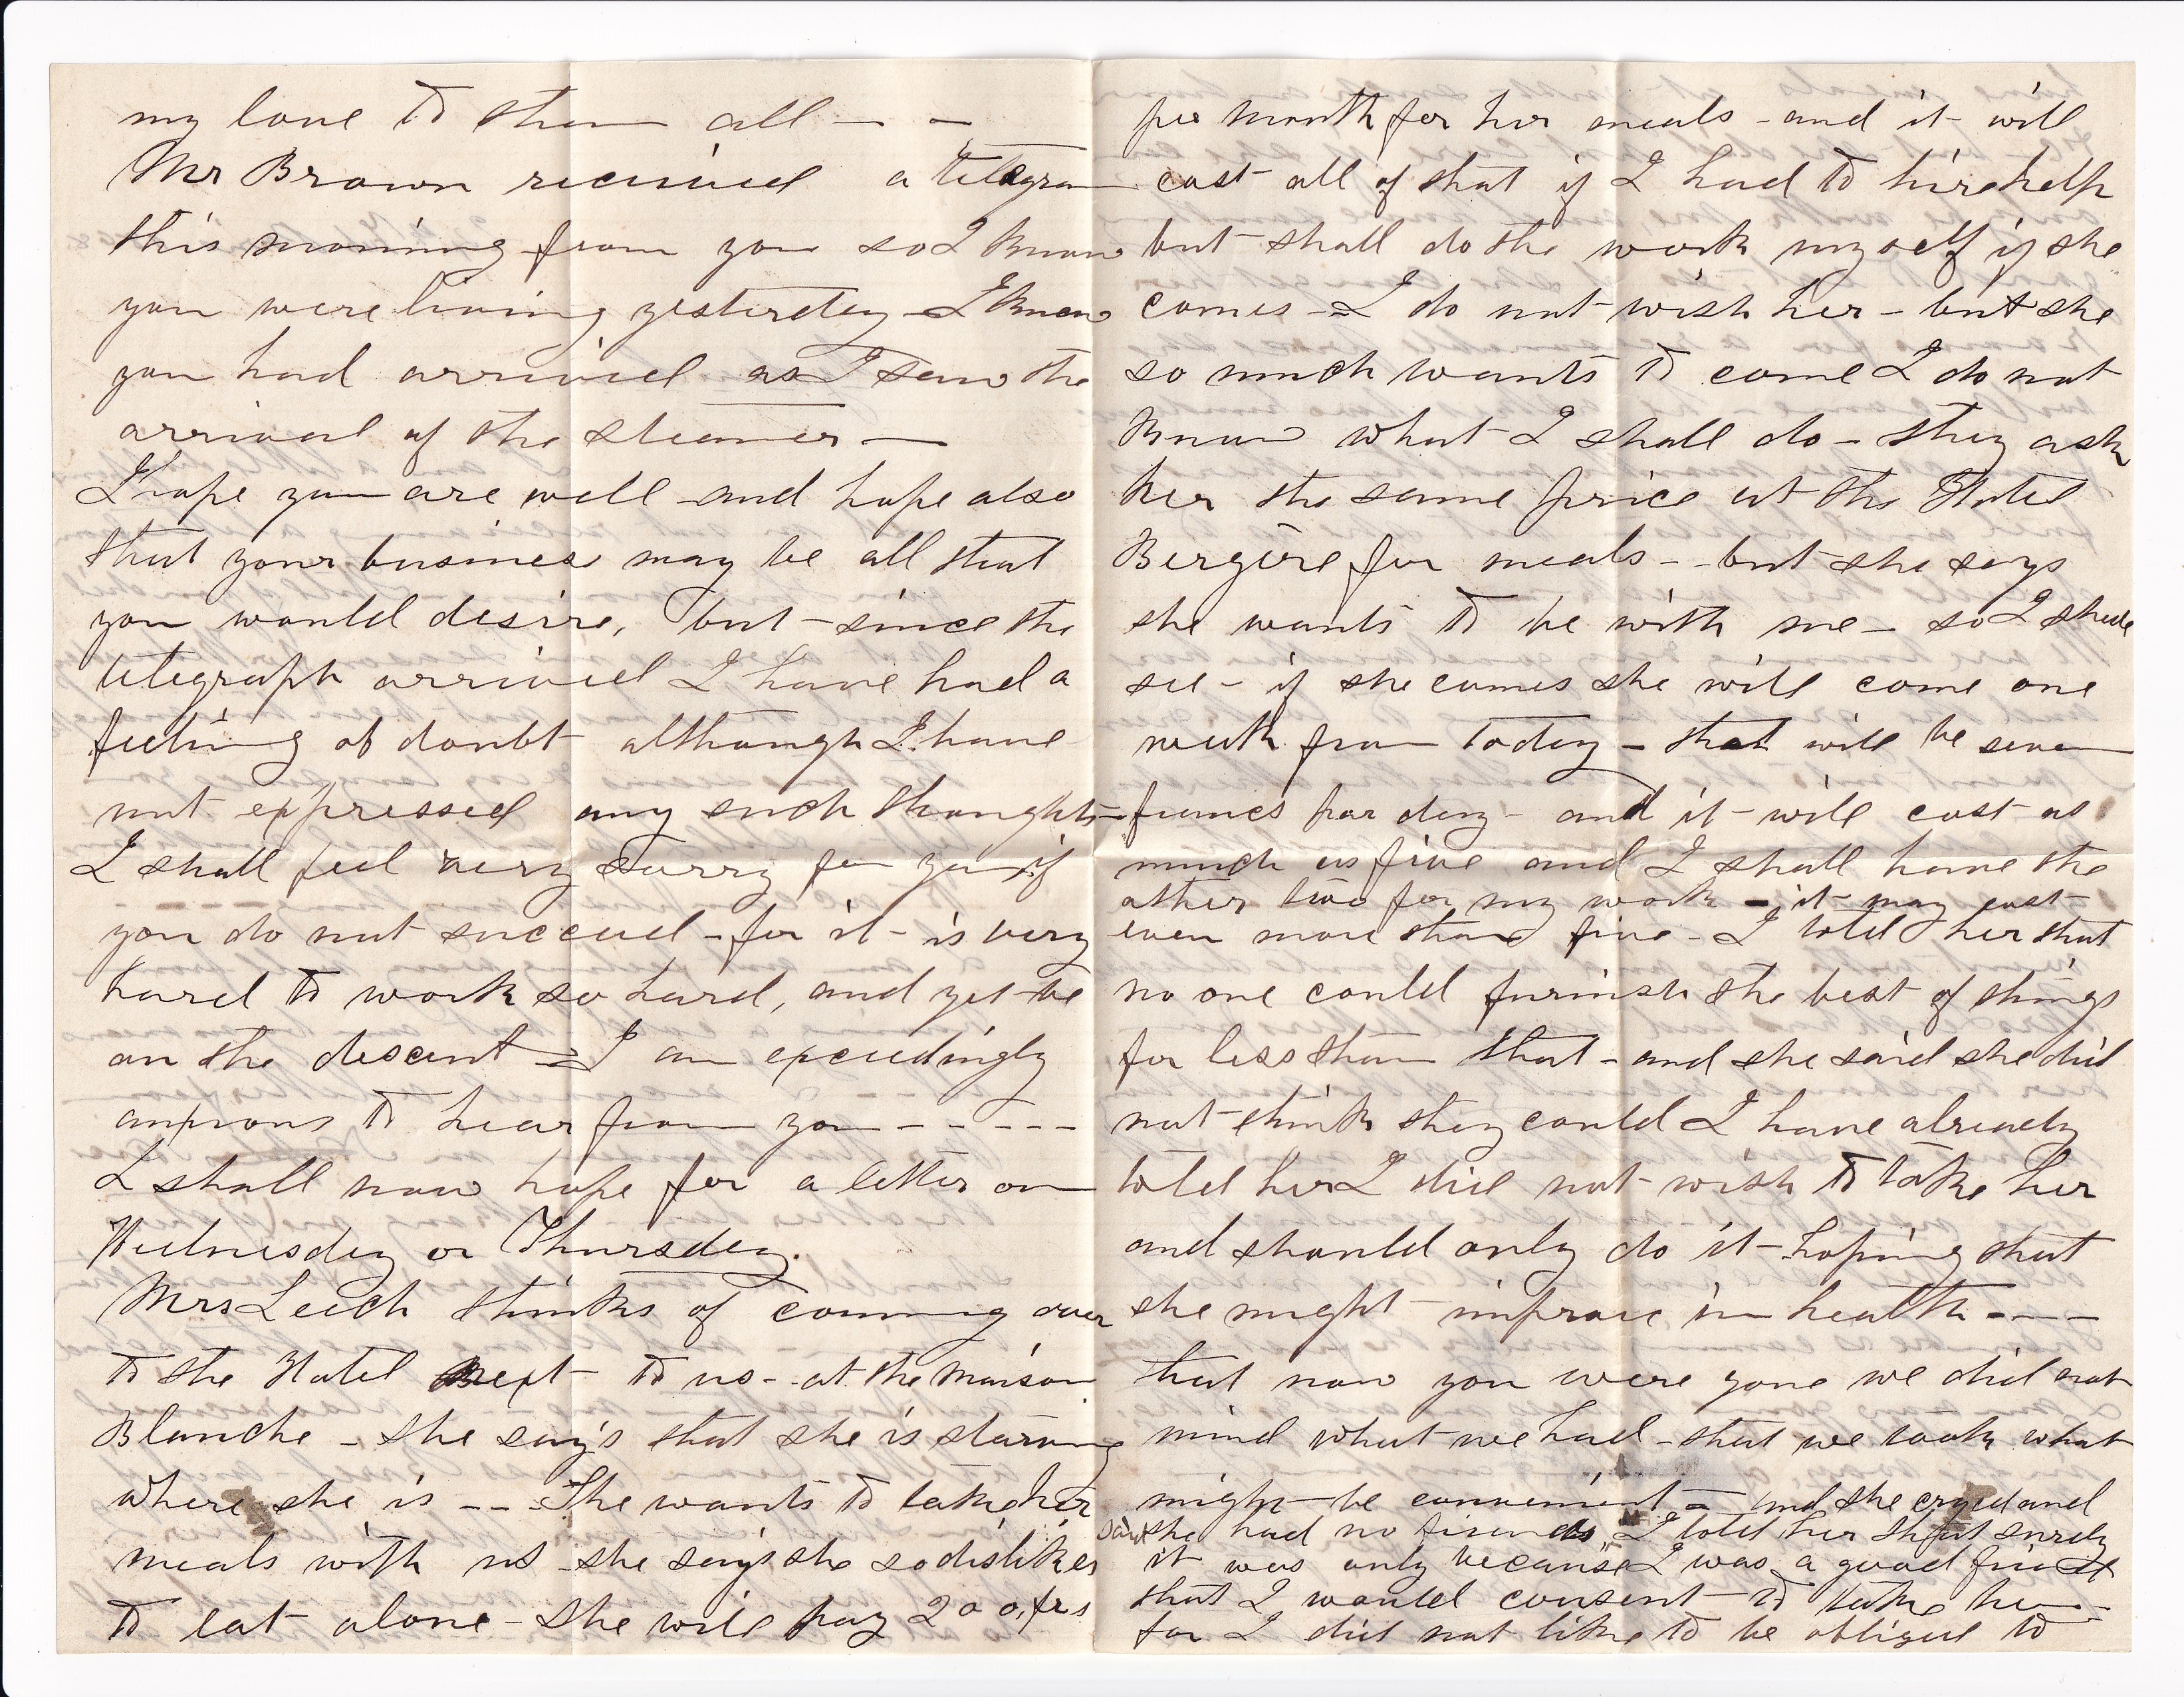 my love to them all — –
Mr Brown received a telegram
this morning from you so I know
you were living yesterday – I knew
you had arrived as I saw the
arrival of the steamer —
I hope you are well – and hope also
that your business may be all that
you would desire, but – since the
telegraph arrived I have had a
feeling of doubt although I have
not expressed any such thoughts –
I shall feel very sorry for you if
you do not succeed – for it – is very
hard to work so hard, and yet be
on the descent – I am exceedingly
anxious to hear from you - - - - -
I shall now hope for a letter on
Wednesday or Thursday.
Mrs Leech thinks of coming over
to the Hotel next to us - at the Maison
Blanche – she says that she is starving
where she is -- She wants to take her
meals with us – she says she so dislikes
to eat alone – she will pay 200, frs
per month for her meals – and it will
cost all of that if I had to hire help
but shall do the work myself if she
comes – I do not wish her – but she
so much wants to come I do not
know what I shall do – they ask
her the same price at the Hotel
Bergère for meals -- but she says
she wants to be with me – so I shall
see – if she comes she will come one
week from today – that will be seven
francs par day – and it – will cost as
much as five and I shall have the
other two for my work – it may cost –
even more than five – I told her that
no one could furnish the best of things
for less than that – and she said she did
not think they could I have already
told her I did not wish to take her
and should only do it – hoping that
she might improve in health - - - -
that now you were gone we did not
mind what we had – that we took what
might be convenient – and she cryed and
said she had no friends, I told her that surely
it was only because I was a good friend
that I would consent to take her –
for I did not like to be obliged to